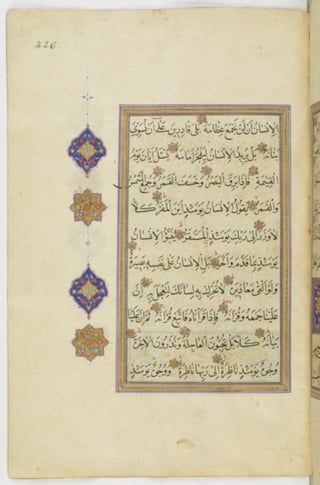 426
الإنسان أن لن نجمع عظامه بلى قادرين على أن نسوي
بنانه بل يريد الإنسان ليفجر أمامه يسئل أيان يوم
القيمة فإذا برق البصر وخسف القمر وجمع الشمس
والقمر يقول الإنسان يومئذ أين المفر كلا
لا وزر إلى ربك يومئذ المستقر ينبؤ الإنسان
يومئذ بما قدم وأخر بل الإنسان على نفسه بصيرة
ولو ألقى معاذيره لا تحرك به لسانك لتعجل به إن
علينا جمعه وقرآنه فإذا قرأناه فاتبع قرآنه ثم إن علينا
بيانه كلا بل تحبون العاجلة وتذرون الآخرة
وجوه يومئذ ناضرة إلى ربها ناظرة ووجوه يومئذ